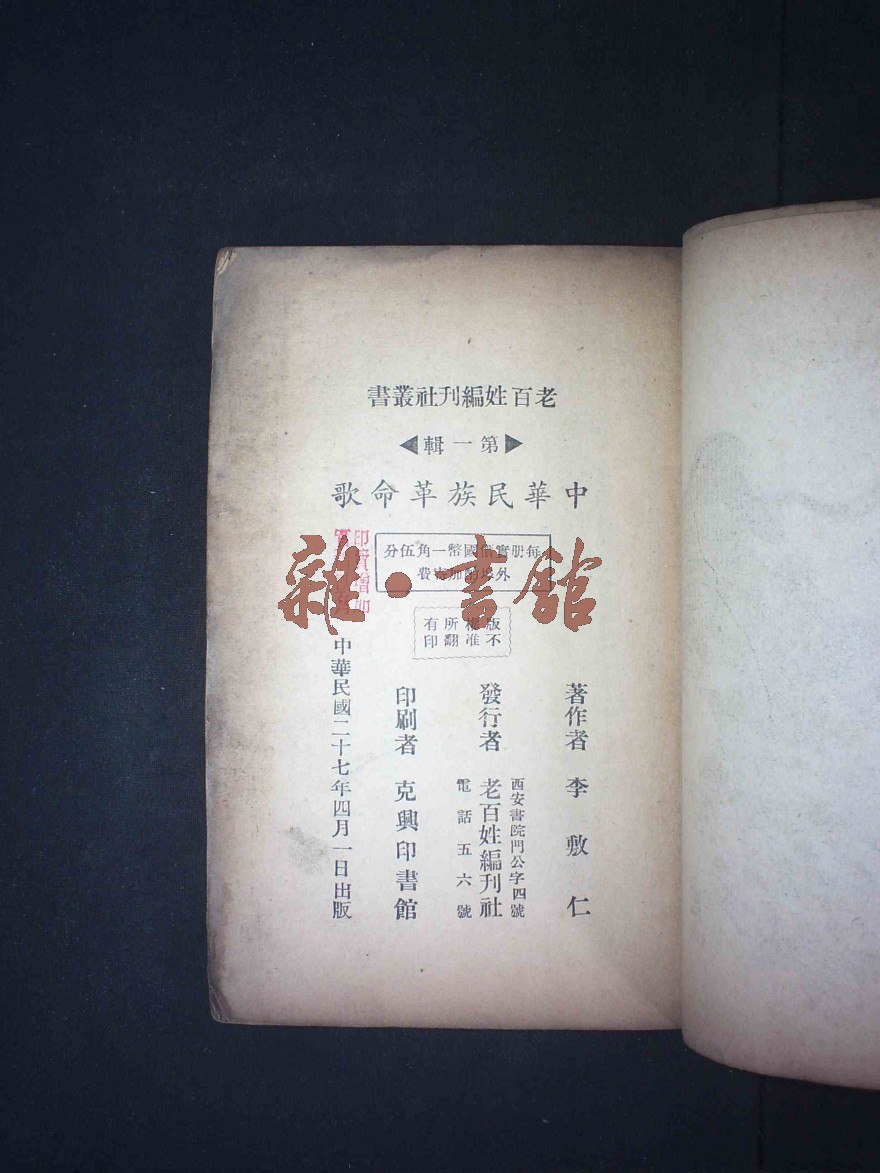 老百姓編刊社叢書
第一輯
中華民族革命歌
每册實價國幣一角伍分
外埠酌加寄費
版權所有
不准翻印
著作者 李敷仁
西安書院門公字四號
發行者 老百姓編刊社
電話五六號
印刷者 克興印書館
中華民國二十七年四月一日出版
雜·書館